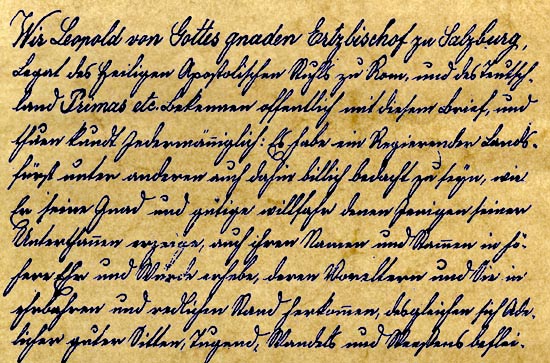 Wir Leopold von Gottes gnaden Ertzbischof zu Salzburg,
Legat des heiligen Apostolischen Stuhls zu Rom, und des Teutsch-
land Primas etc. bekennen offentlich mit diesem Brief, und
thuen kundt Jedermänniglich: Es habe ein Regierender Lands-
fürst unter anderen auch dahin billich bedacht zu seyn, wie
Er seine Gnad und gütige willfahr denen Jenigen seinen
Unterthannen erzeige, auch ihren Namen und Stammen in hö-
here Ehr und Würde erhebe, deren Voreltern und Sie in
ehrbahren und redlichen Stand herkommen, desgleichen sich Ade-
licher guter Sitten, Tugend, Wandels und Weesens beflei-